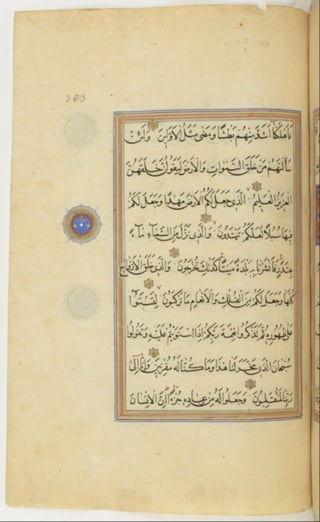 فاهلكنا اشد منهم بطشا ومضى مثل الاولين ولئن
سالتهم من خلق السموات والارض ليقولن خلقهن
العزيز العليم الذى جعل لكم الارض مهدا وجعل لكم
فيها سبلا لعلكم تهتدون والذى نزل من السماء ماء
بقدر فانشرنا به بلدة ميتا كذلك تخرجون والذى خلق الازواج
كلها وجعل لكم من الفلك والانعام ما تركبون لتستووا
على ظهوره ثم تذكروا نعمة ربكم اذا استويتم عليه وتقولوا
سبحان الذى سخر لنا هذا وما كنا له مقرنين وانا الى
ربنا لمنقلبون وجعلوا له من عباده جزءا ان الانسان